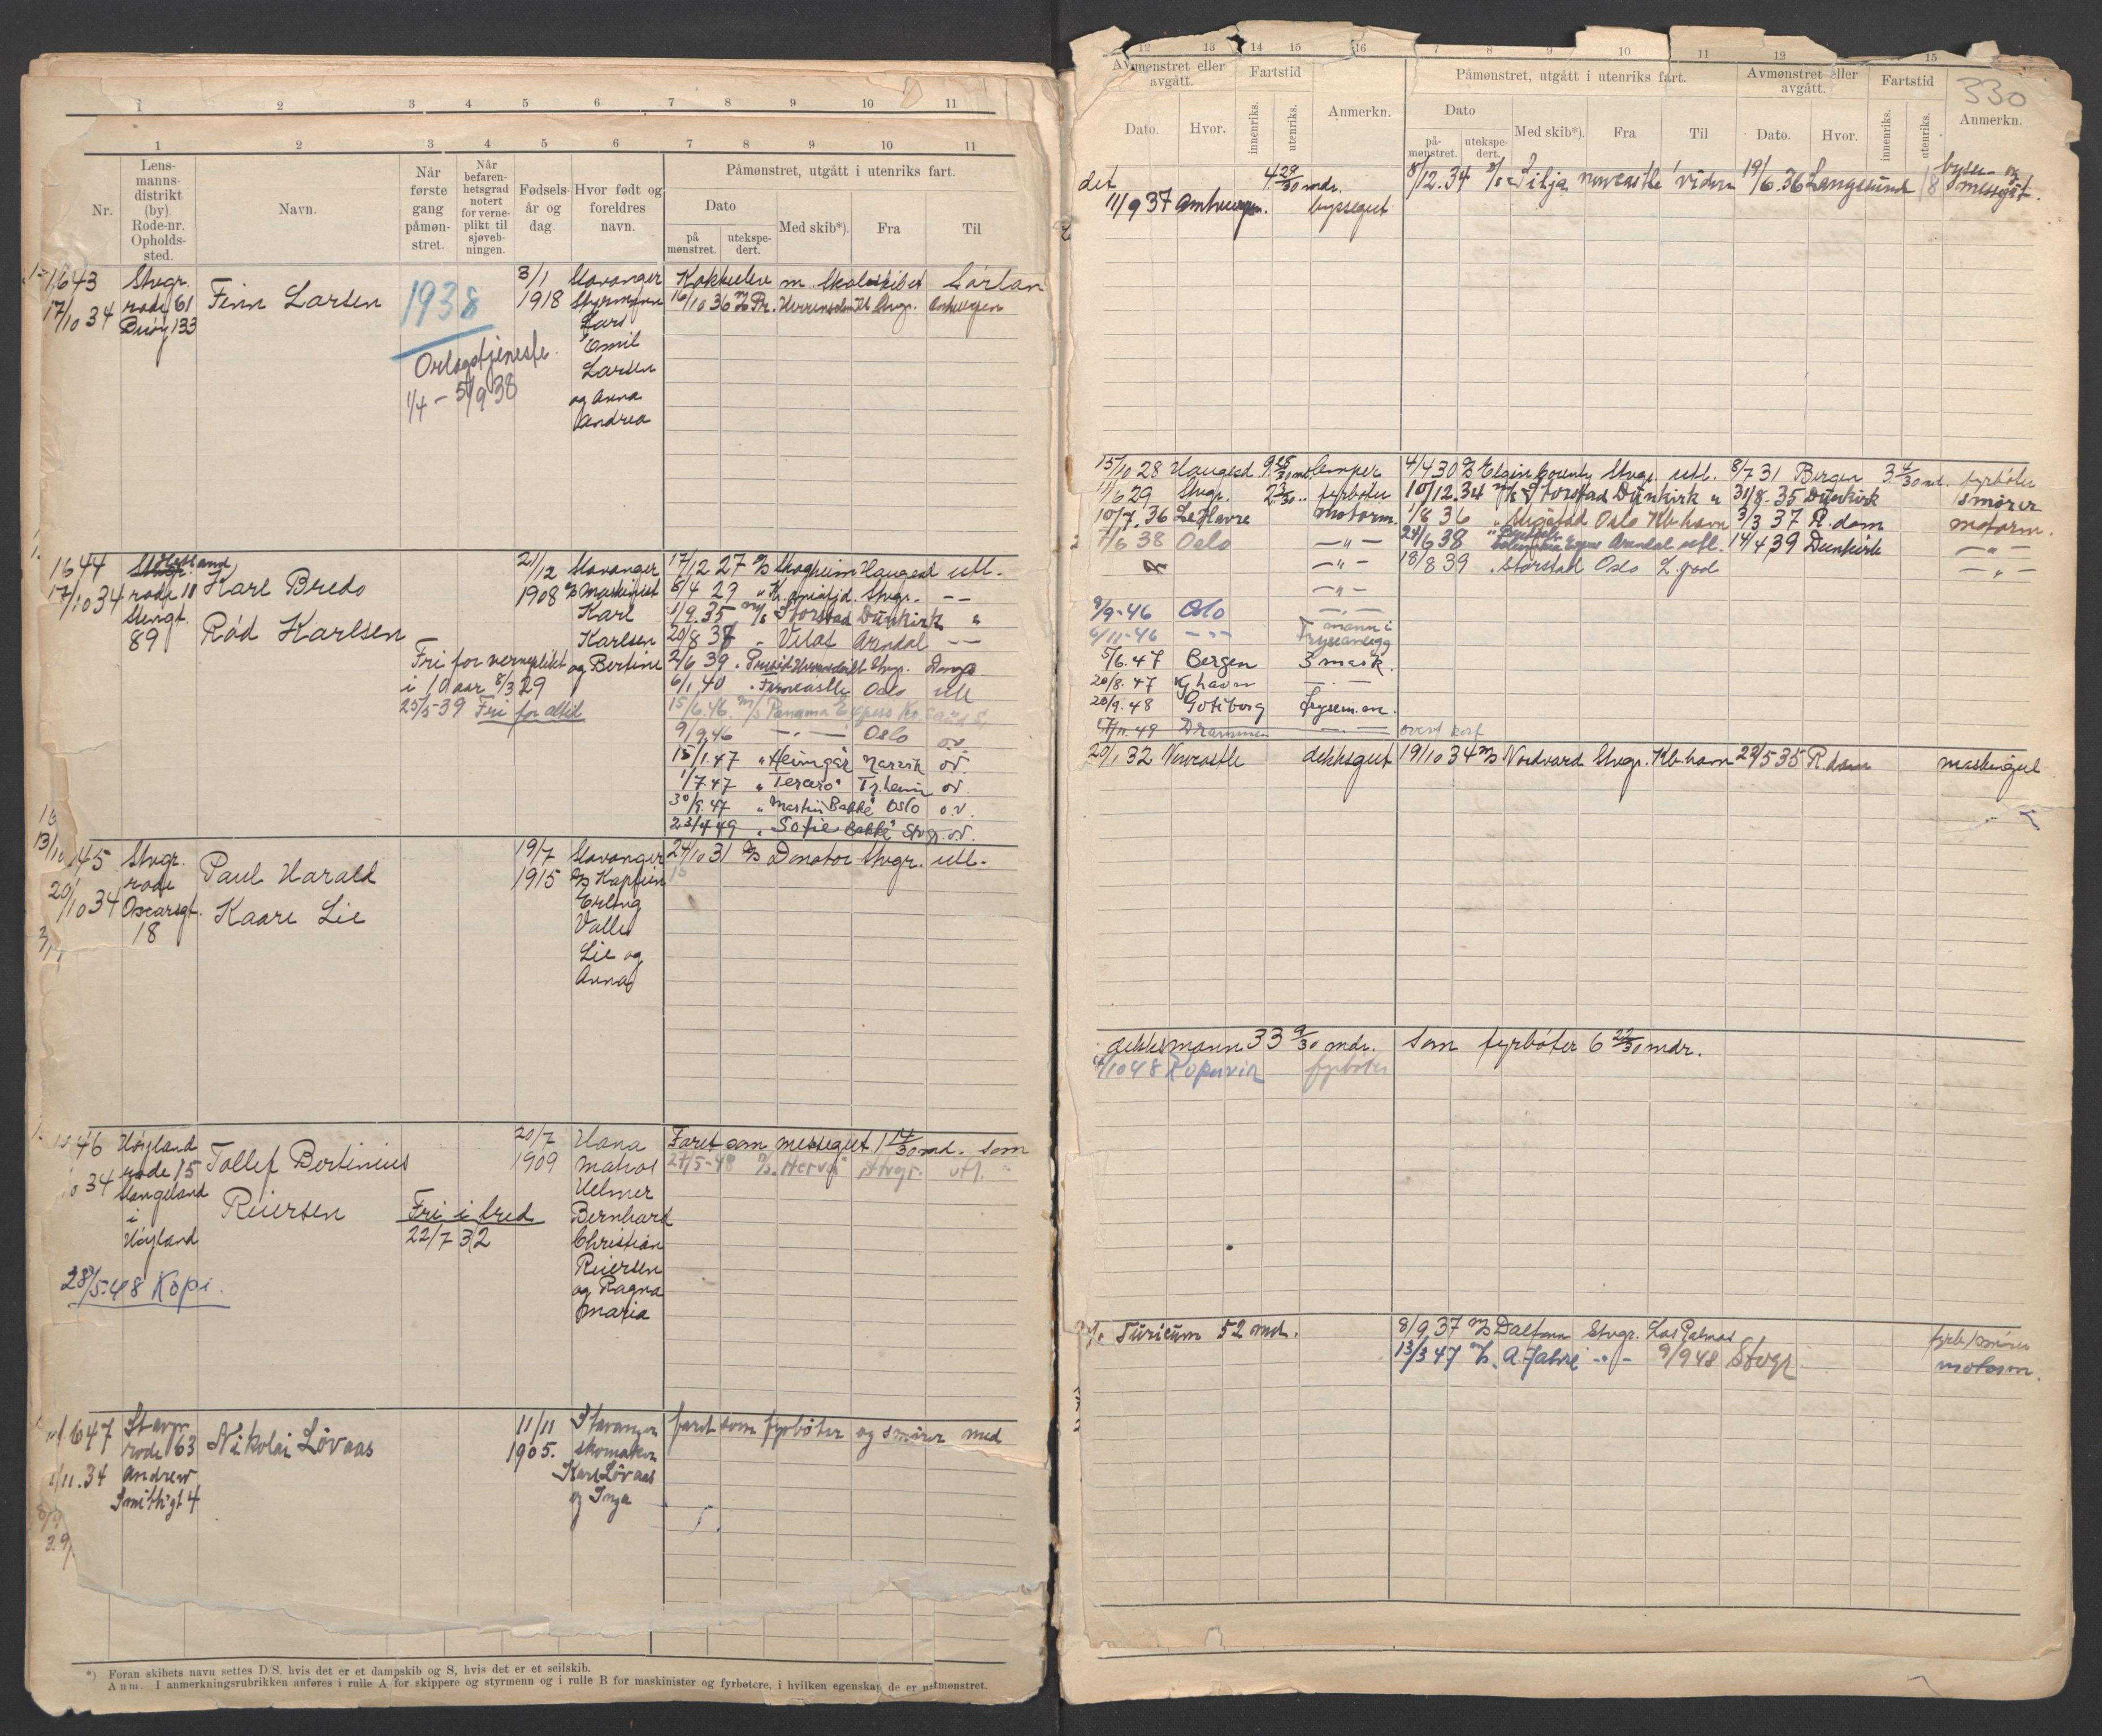 1 2 3 4 5 6 7 8 9 10 11
1 2 3 4 5 6 7 8 9 10 11
Nr.
Lens-
manns-
distrikt
(by)
Rode-nr.
Opholds-
sted.
Navn.
Når
første
gang
påmøn-
stret.
Når
befaren-
hetsgrad
notert
for verne-
plikt til
sjøveb-
ningen.
Fødsels-
år og
dag.
Hvor født og
foreldres
navn.
Påmønstret, utgått i utenriks fart.
Dato
på
mønstret.
utekspe-
dert.
Med skib*).
Fra
Til
1643
17/10 34
Stvgr.
rode 61
133
Finn Larsen
1938
Orlogstjeneste
1/4 - 5/9 38
3/1
1918
Stavanger
Styrmann
Lars
Emil
Larsen
og Anna
Andrea
Kokkeelev m. Skoleskibet Sørlan
16/10 36 Stvgr. Antwerpen
1644
17/10 34
Stvgr.
rode 18
89
Karl Bredo
Rød Karlsen
Fri for verneplikt
i 10 aar 8/3 29
25/5-39 Fri for altid
21/12
1908
Stavanger
Maskinist
Karl
Karlsen
og Bertine
17/12 27 Skogheim Haugesd utl.
8/4 29 Stvgr. - -
1/9.35 m/s Storstad Dünkirk "
20/8 37 " Velos Arendal - -
2/6 39 Stvgr.
6/1 40 " Ferncastle Oslo utl
15/6.46. m/s Panama Express
9/9.46 - " - Oslo ov.
15/1.47 " Heimgar Narvik ov.
1/7.47 " Tercero" Tr.heim ov.
30/9.47 " Martin Bakke" Oslo o.v.
23/4 49 " Sofie Bakke" Stvgr. ov.
45
20/10 34
Stvgr.
rode
Oscarsgt.
18
Paul Harald
Kaare Lie
19/7
1915
Stavanger
Kaptein
Erling
Valle
Lie og
Anna
24/10 31 Donator Stvgr. utl.
46
34
Høyland
rode 15
Stangeland
i
Høyland
28/5-48 Kopi.
Tollef Bertinius
Reiersen
Fri i fred
22/7 32
20/7
1909
Hana
matros
Helmer
Bernhard
Christian
Reiersen
og Ragna
Maria
Faret som messegut 1 14/30 md. som
24/5-48 Stvgr. utl.
1647
1/11.34
Stavgr.
rode 63
Andrew
Smithgt 4
Nikolai Løvaas
11/11
1905.
Stavanger
skomaker
Karl Løvaas
og Inga
faret som fyrbøter og smører med
*) Foran skibets navn settes D/S, hvis det er et dampskib og S, hvis det er et seilskib.
Anm. I anmerkningsrubrikken anføres i rulle A for skippere og styrmenn og i rulle B for maskinister og fyrbøtere, i hvilken egenskap de er utmønstret.
12 13 14 15 16 7 8 9 10 11 12 15
330
Avmønstret eller
avgått.
Fartstid
Anmerkn.
Påmønstret, utgått i utenriks fart.
Avmønstret eller
avgått.
Fartstid
Anmerkn.
Dato.
Hvor.
innenriks.
utenriks.
Dato
på-
mønstret.
utekspe-
dert.
Med skib*).
Fra
Til
Dato.
Hvor.
innenriks.
utenriks.
det 4 29/30 mdr. 8/12.34 Silja Newcastle viden 19/6.36 Langesund 18 bysse- og
messegut.
11/9 37 Antwerpen. byssegut
15/10 28 Haugesd 9 25/30 md. lemper 4/4 30 Elgin County Stvgr. utl. 8/7 31 Bergen 3 4/30 md. fyrbøter
11/6 29 Stvgr. 2 3/30 " fyrbøter 10/12.34 m/s Storstad Dünkirk " 31/8-35 Dünkirk smører
10/7.36 Le Havre motorm. 1/8 36 Oslo Kb.havn 3/3 37 R.dam motorm.
7/6 38 Oslo - " - 24/6 38 Arendal utl. 14/4 39 Dunkirk - " -
- " - 18/8 39 " Storstad Oslo L.god - " -
- " -
9/9-46 Oslo - " -
6/11-46 - " - mann i
fryseanlegg
5/6.47 Bergen 3 mask.
20/8.47 Kj.havn - " -
20/9.48 Göteborg frysem.
17/11.49 Drammen - " - overf kort
20/1 32 Newcastle dekksgut 19/10 34 Nordvard Stvgr. Kb.havn 29/5 35 R.dam maskingut
dekksmann 33 9/30 mdr. som fyrbøter 6 22/30 mdr.
/10 48 Kopervik fyrbøter
Turicum 52 md. 8/9 37 Dalfonn Stvgr. Las Palmas fyrb/smører
13/3 47 A. Jahre - " - 9/9 48 Stvgr motorm.